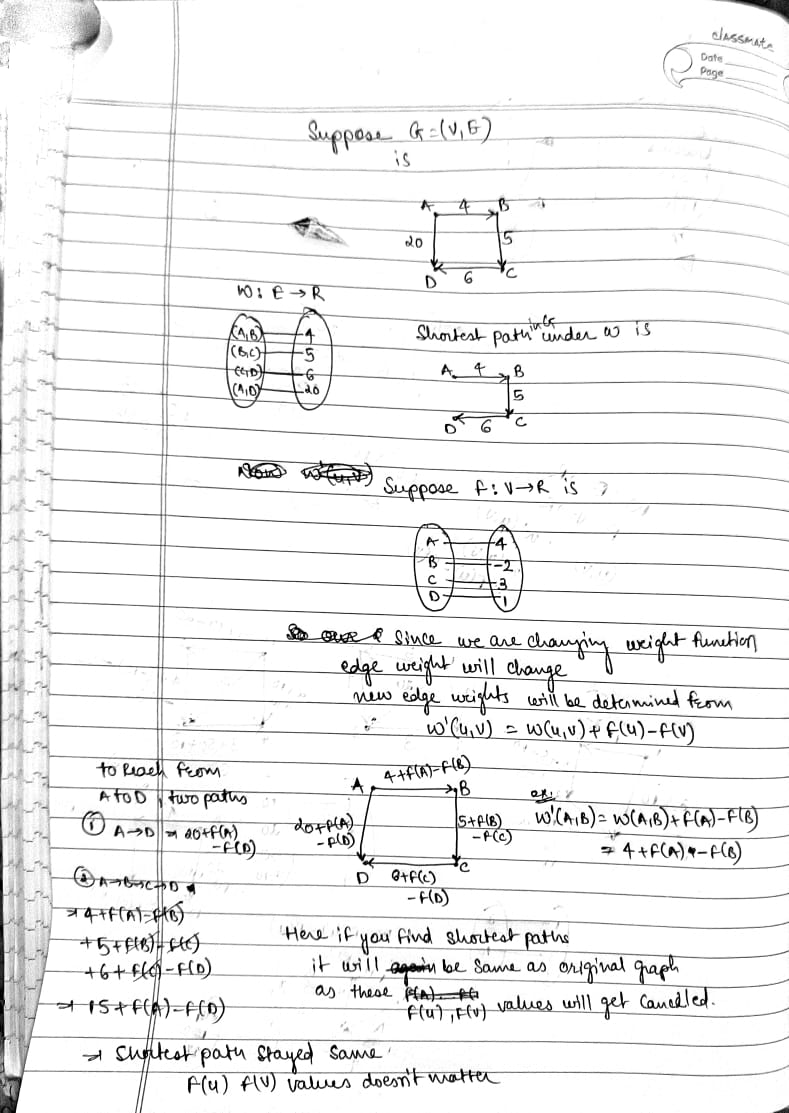 classmate
Date
Page
Suppose G=(V,E)
is
A 4 B
20 5
D 6 C
W: E → R
(A,B) 4
(B,C) 5
(C,D) 6
(A,D) 20
Shortest path in G under w is
A 4 B
5
D 6 C
Suppose f: V→R is
A 4
B -2
C -3
D 1
Since we are changing weight function
edge weight will change
new edge weights will be determined from
w'(u,v) = w(u,v) + f(u)-f(v)
to reach from
A to D, two paths
① A→D ⇒ 20+f(A)
-f(D)
② A→B→C→D
⇒ 4+f(A)-f(B)
+5+f(B)-f(C)
+6+f(C)-f(D)
⇒ 15+f(A)-f(D)
A 4+f(A)-f(B) B
20+f(A)
-f(D)
5+f(B)
-f(C)
D 6+f(C) C
-f(D)
ex:
w'(A,B) = w(A,B)+f(A)-f(B)
= 4+f(A)-f(B)
Here if you find shortest paths
it will be same as original graph
as these
f(u), f(v) values will get cancelled.
→ shortest path stayed same
f(u) f(v) values doesn't matter